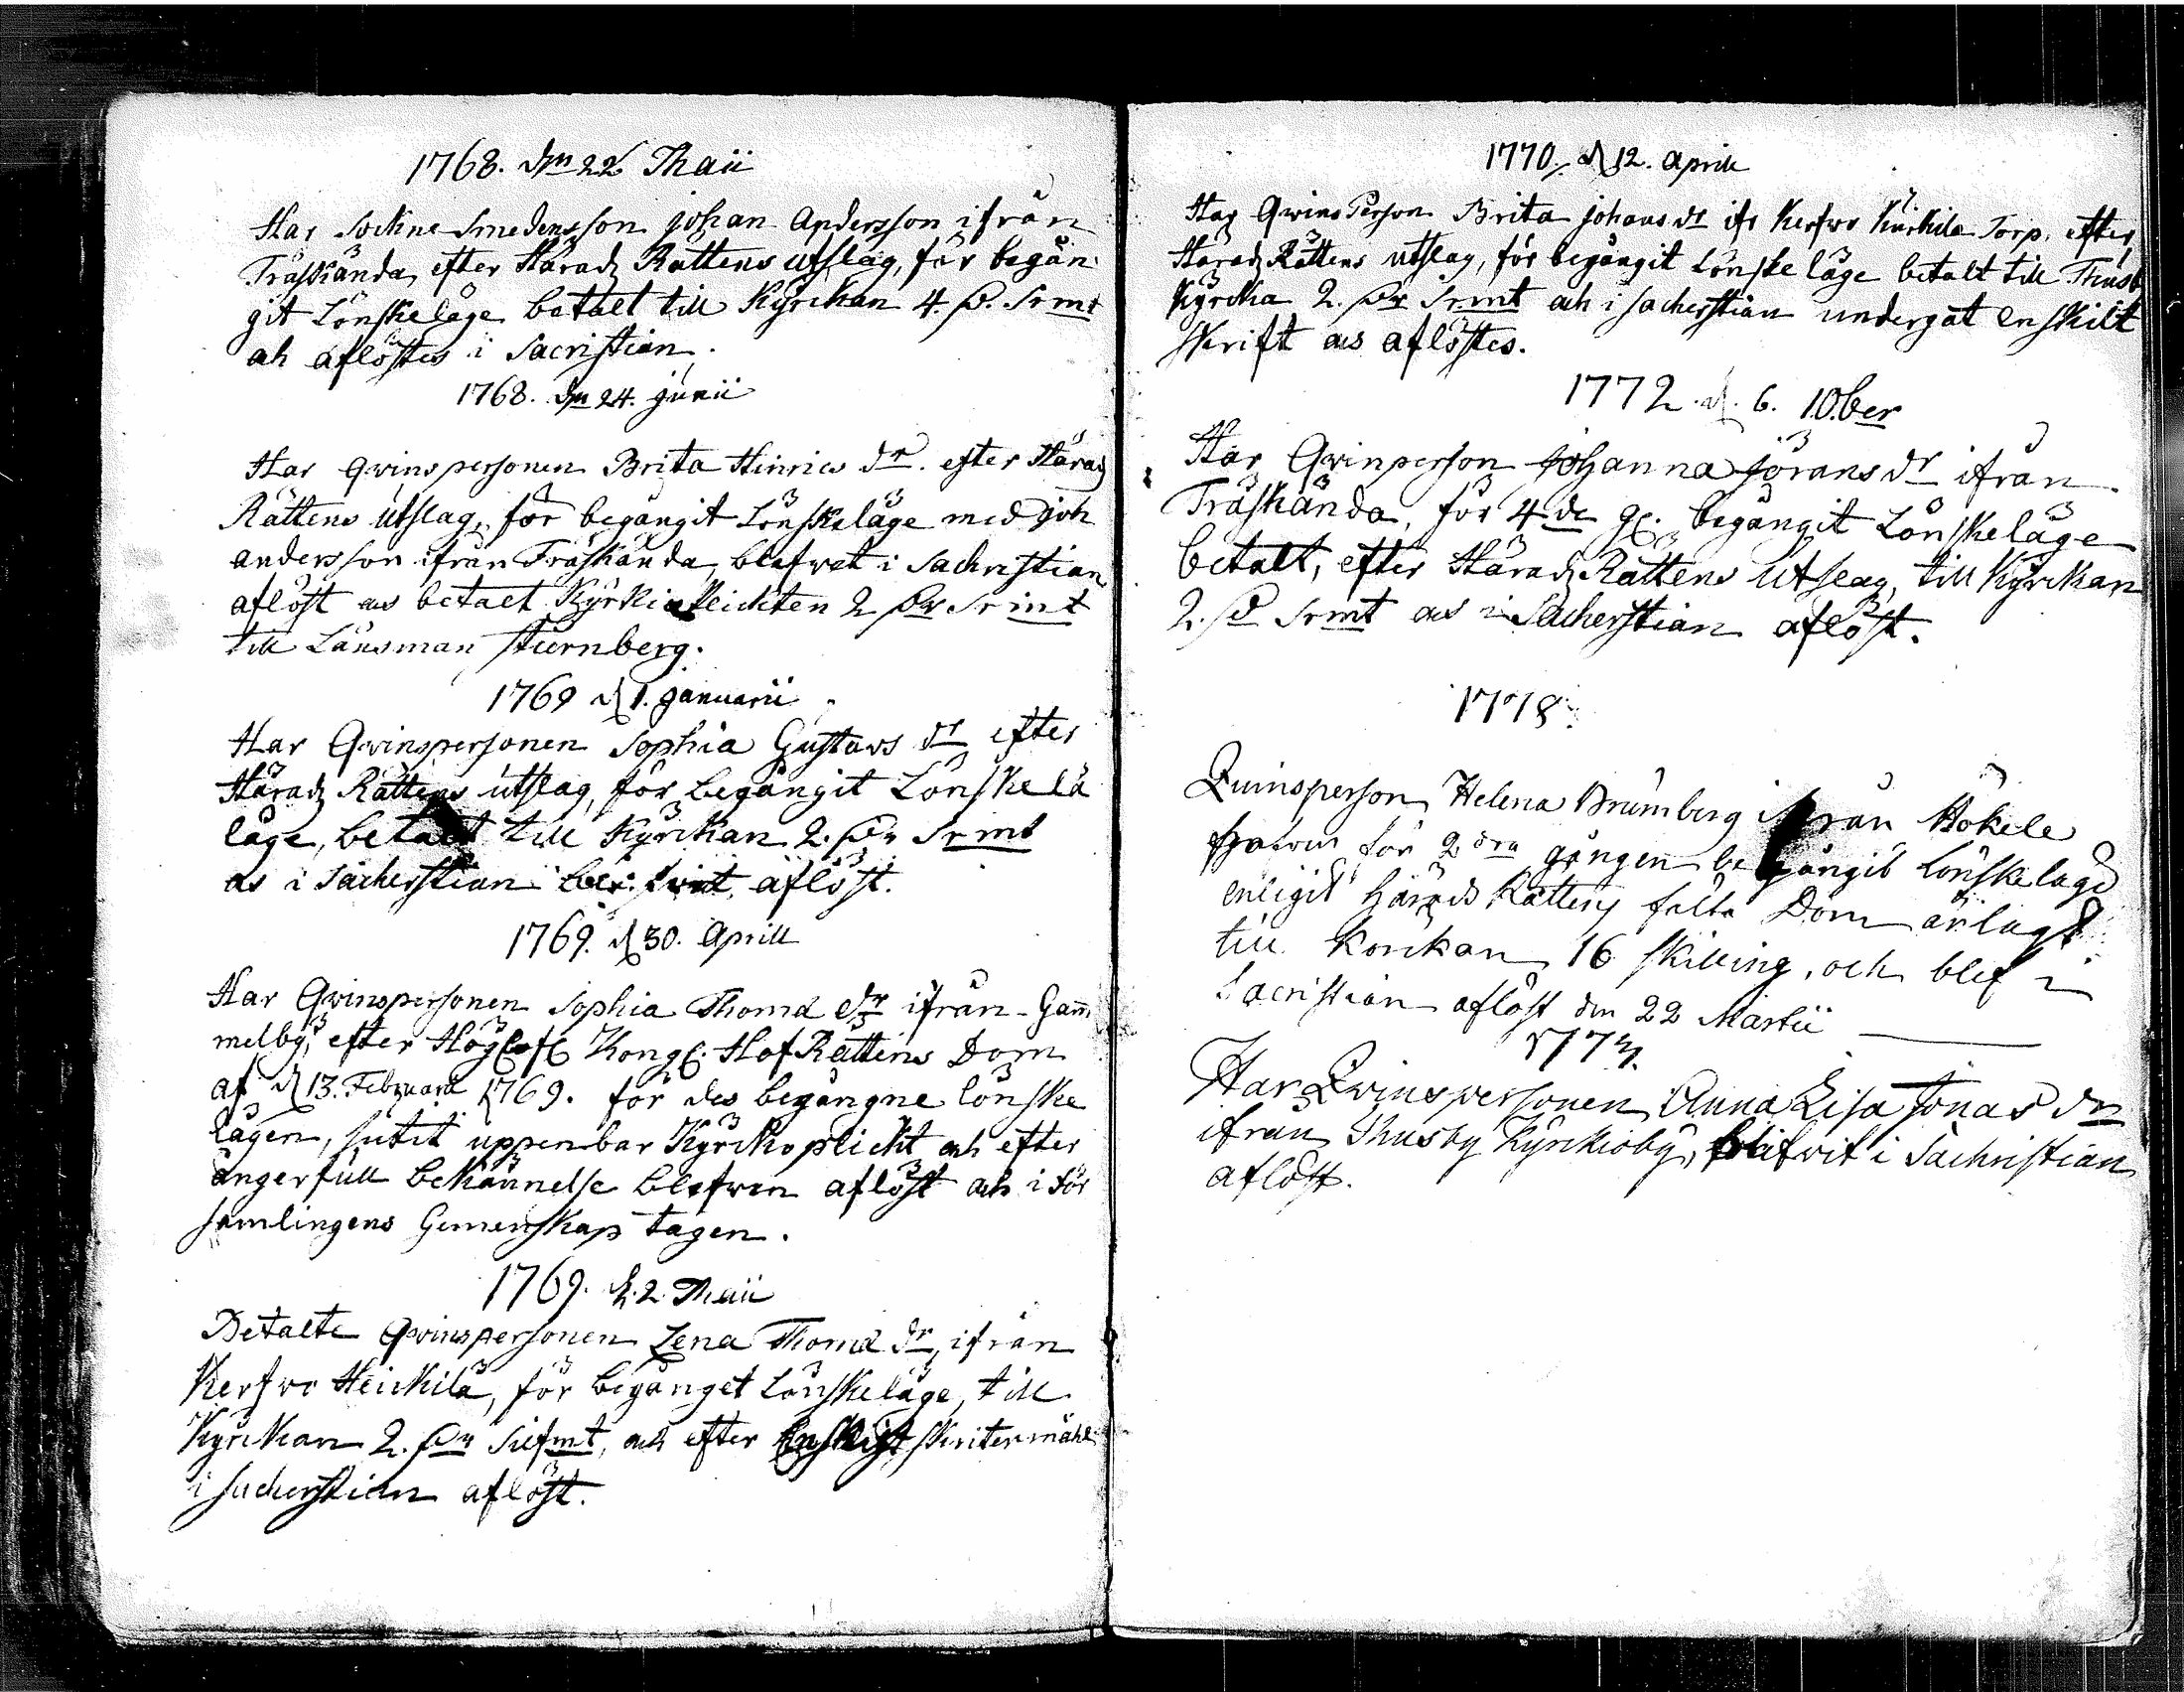 1768. den 22 Maii
Har Sockne Smedens son Johan Andersson ifrån
Träskända, efter Härads Rättens utslag, för begån
git Lönskeläge betalt till Kyrckan 4. D. Srmt
och aflöstes i Sacristian.
1768. den 24. Junii
Har Qvinspersonen Brita Hinrics dr. efter Härads
Rättens utslag, för begångit Lönskeläge med Joh
andersson ifrån Träskända, blefvet i Sachristian
aflöst och betalt Kyrkioplickten 2 Dr Srmt
till Länsman Stiernberg.
1769 d 1. Januarii
Har Qvinspersonen Sophia Gustavs dr efter
Härads Rättens utslag, för begångit Lönskelä
läge, betalt till Kyrckan 2. Dr Srmt
och i Sacherstian blefwit aflöst.
1769. d 30. Aprill
Har Qvinspersonen Sophia Thomæ dr ifrån Gam
melby, efter Höglofl Kongl. HofRättens Dom
af d 13. Februarii 1769. för des begångne lönske
lägen, sutit uppenbar Kyrckoplickt och efter
ångerfull bekännelse blefven aflöst och i för
samlingens Gemenskap tagen.
1769. d. 2. Maii
Betalte Qvinspersonen Lena Thomæ dr, ifrån
Kerfvo Heickilä, för begånget Lönskeläge, till
Kyrckan 2. Dr Silfmt, och efter Enskilt skriftermåhl
i Sacherstian aflöst.
1770. d 12. Aprill
Har Qvins Person Brita Johans dr ifr Kerfvo Kurkila Torp, efter
Härads Rättens utslag, för begångit Lönskeläge betalt till Thusb
Kyrcka 2. Dr Srmt och i Sacherstian undergåt enskilt
skrift och aflöstes.
1772 d. 6. 10ber
Har Qvinperson Johanna Jörans dr ifrån
Träskända, för 4de gg. begångit Lönskeläge
betalt, efter Härads Rättens Utslag, till Kyrckan
2. D Srmt och i Sacherstian aflöst.
1778.
Quinsperson Helena Brumberg ifrån Hökele
för 2dra gången begångit Lönskeläge
enligit Härads Rättens fälte Dom ärlagt
till Körckan 16 skilling, och blef i
Sacristian aflöst den 22 Martii
Har Qvinspersonen Anna Lisa Jonas dr
ifrån Thusby Kyrckioby, blifvit i Sachristian
aflöst.